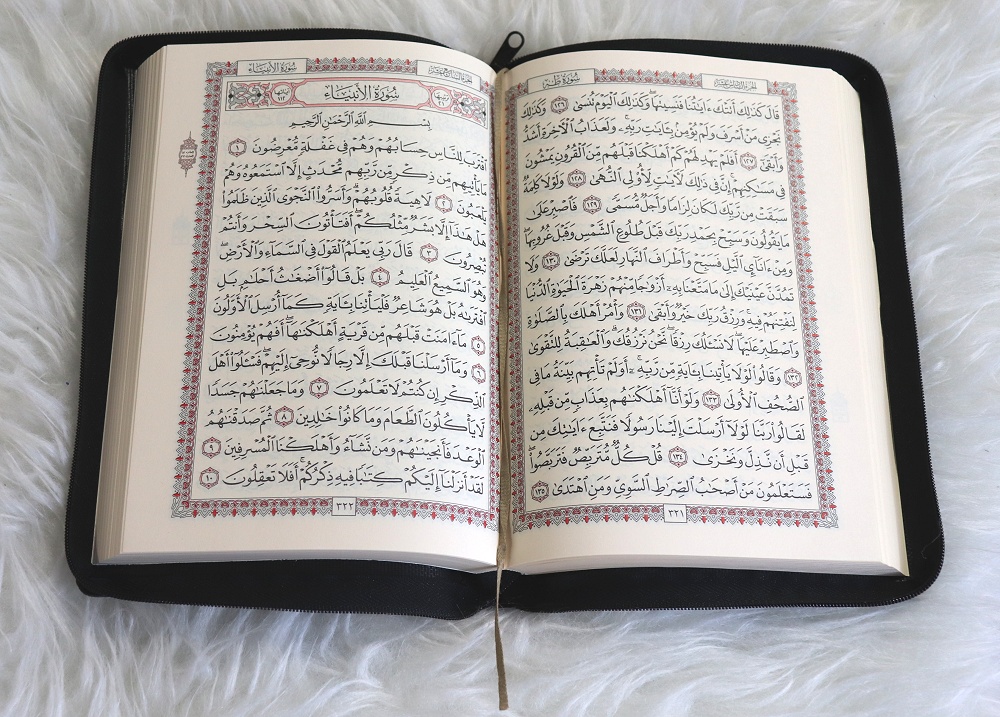 سُورَةُ طه
الجُزْءُ السَّادِسَ عَشَرَ
قَالَ كَذَٰلِكَ أَتَتْكَ ءَايَٰتُنَا فَنَسِيتَهَا ۖ وَكَذَٰلِكَ ٱلْيَوْمَ تُنسَىٰ ١٢٦ وَكَذَٰلِكَ
نَجْزِى مَنْ أَسْرَفَ وَلَمْ يُؤْمِنۢ بِـَٔايَٰتِ رَبِّهِۦ ۚ وَلَعَذَابُ ٱلْـَٔاخِرَةِ أَشَدُّ
وَأَبْقَىٰٓ ١٢٧ أَفَلَمْ يَهْدِ لَهُمْ كَمْ أَهْلَكْنَا قَبْلَهُم مِّنَ ٱلْقُرُونِ يَمْشُونَ
فِى مَسَٰكِنِهِمْ ۗ إِنَّ فِى ذَٰلِكَ لَـَٔايَٰتٍ لِّأُو۟لِى ٱلنُّهَىٰ ١٢٨ وَلَوْلَا كَلِمَةٌ
سَبَقَتْ مِن رَّبِّكَ لَكَانَ لِزَامًا وَأَجَلٌ مُّسَمًّى ١٢٩ فَٱصْبِرْ عَلَىٰ
مَا يَقُولُونَ وَسَبِّحْ بِحَمْدِ رَبِّكَ قَبْلَ طُلُوعِ ٱلشَّمْسِ وَقَبْلَ غُرُوبِهَا ۖ
وَمِنْ ءَانَآئِ ٱلَّيْلِ فَسَبِّحْ وَأَطْرَافَ ٱلنَّهَارِ لَعَلَّكَ تَرْضَىٰ ١٣٠ وَلَا
تَمُدَّنَّ عَيْنَيْكَ إِلَىٰ مَا مَتَّعْنَا بِهِۦٓ أَزْوَٰجًا مِّنْهُمْ زَهْرَةَ ٱلْحَيَوٰةِ ٱلدُّنْيَا
لِنَفْتِنَهُمْ فِيهِ ۚ وَرِزْقُ رَبِّكَ خَيْرٌ وَأَبْقَىٰ ١٣١ وَأْمُرْ أَهْلَكَ بِٱلصَّلَوٰةِ
وَٱصْطَبِرْ عَلَيْهَا ۖ لَا نَسْـَٔلُكَ رِزْقًا ۖ نَّحْنُ نَرْزُقُكَ ۗ وَٱلْعَٰقِبَةُ لِلتَّقْوَىٰ
١٣٢ وَقَالُوا۟ لَوْلَا يَأْتِينَا بِـَٔايَةٍ مِّن رَّبِّهِۦٓ ۚ أَوَلَمْ تَأْتِهِم بَيِّنَةُ مَا فِى
ٱلصُّحُفِ ٱلْأُولَىٰ ١٣٣ وَلَوْ أَنَّآ أَهْلَكْنَٰهُم بِعَذَابٍ مِّن قَبْلِهِۦ
لَقَالُوا۟ رَبَّنَا لَوْلَآ أَرْسَلْتَ إِلَيْنَا رَسُولًا فَنَتَّبِعَ ءَايَٰتِكَ مِن
قَبْلِ أَن نَّذِلَّ وَنَخْزَىٰ ١٣٤ قُلْ كُلٌّ مُّتَرَبِّصٌ فَتَرَبَّصُوا۟ ۖ
فَسَتَعْلَمُونَ مَنْ أَصْحَٰبُ ٱلصِّرَٰطِ ٱلسَّوِىِّ وَمَنِ ٱهْتَدَىٰ ١٣٥
٣٢١
سُورَةُ الأَنبِيَاء
سُورَةُ الأَنبِيَاءِ
بِسْمِ ٱللَّهِ ٱلرَّحْمَٰنِ ٱلرَّحِيمِ
ٱقْتَرَبَ لِلنَّاسِ حِسَابُهُمْ وَهُمْ فِى غَفْلَةٍ مُّعْرِضُونَ ١
مَا يَأْتِيهِم مِّن ذِكْرٍ مِّن رَّبِّهِم مُّحْدَثٍ إِلَّا ٱسْتَمَعُوهُ وَهُمْ
يَلْعَبُونَ ٢ لَاهِيَةً قُلُوبُهُمْ ۗ وَأَسَرُّوا۟ ٱلنَّجْوَى ٱلَّذِينَ ظَلَمُوا۟
هَلْ هَٰذَآ إِلَّا بَشَرٌ مِّثْلُكُمْ ۖ أَفَتَأْتُونَ ٱلسِّحْرَ وَأَنتُمْ
تُبْصِرُونَ ٣ قَالَ رَبِّى يَعْلَمُ ٱلْقَوْلَ فِى ٱلسَّمَآءِ وَٱلْأَرْضِ ۖ
وَهُوَ ٱلسَّمِيعُ ٱلْعَلِيمُ ٤ بَلْ قَالُوٓا۟ أَضْغَٰثُ أَحْلَٰمٍۭ بَلِ
ٱفْتَرَىٰهُ بَلْ هُوَ شَاعِرٌ فَلْيَأْتِنَا بِـَٔايَةٍ كَمَآ أُرْسِلَ ٱلْأَوَّلُونَ
٥ مَآ ءَامَنَتْ قَبْلَهُم مِّن قَرْيَةٍ أَهْلَكْنَٰهَآ ۖ أَفَهُمْ يُؤْمِنُونَ
٦ وَمَآ أَرْسَلْنَا قَبْلَكَ إِلَّا رِجَالًا نُّوحِىٓ إِلَيْهِمْ ۖ فَسْـَٔلُوٓا۟ أَهْلَ
ٱلذِّكْرِ إِن كُنتُمْ لَا تَعْلَمُونَ ٧ وَمَا جَعَلْنَٰهُمْ جَسَدًا
لَّا يَأْكُلُونَ ٱلطَّعَامَ وَمَا كَانُوا۟ خَٰلِدِينَ ٨ ثُمَّ صَدَقْنَٰهُمُ
ٱلْوَعْدَ فَأَنجَيْنَٰهُمْ وَمَن نَّشَآءُ وَأَهْلَكْنَا ٱلْمُسْرِفِينَ ٩
لَقَدْ أَنزَلْنَآ إِلَيْكُمْ كِتَٰبًا فِيهِ ذِكْرُكُمْ ۖ أَفَلَا تَعْقِلُونَ ١٠
٣٢٢